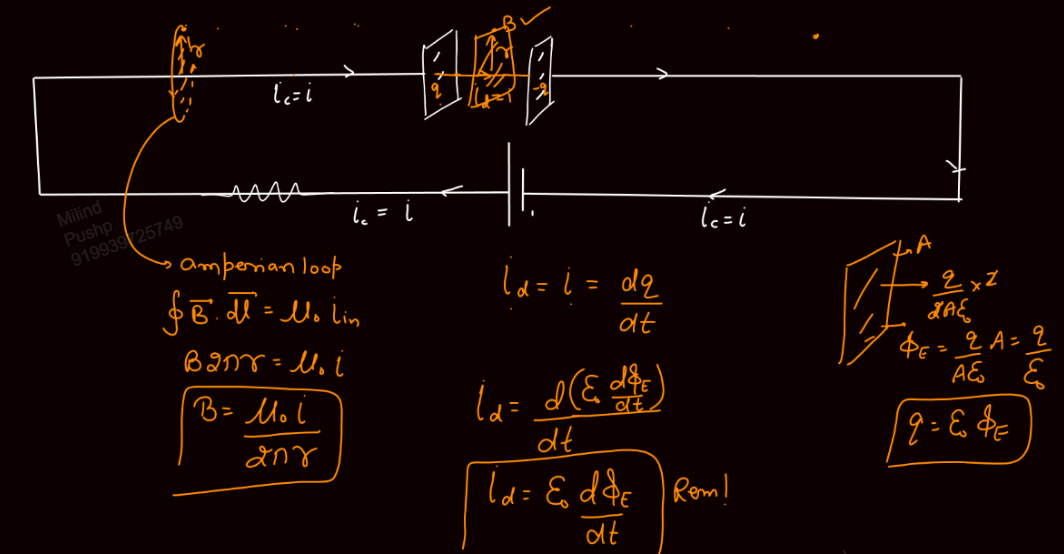 B ✓
r
r
i_c = i
q
i_d = i
-q
i_c = i
i_c = i
Milind
Pushp
919939725749
amperian loop
∮ B⃗ . dl⃗ = μ₀ i_in
B 2πr = μ₀ i
B = μ₀ i / 2πr
i_d = i = dq / dt
i_d = d(ε₀ dϕ_E / dt) / dt
i_d = ε₀ dϕ_E / dt Rem!
A
q / 2Aε₀ × 2
ϕ_E = q / Aε₀ A = q / ε₀
q = ε₀ ϕ_E